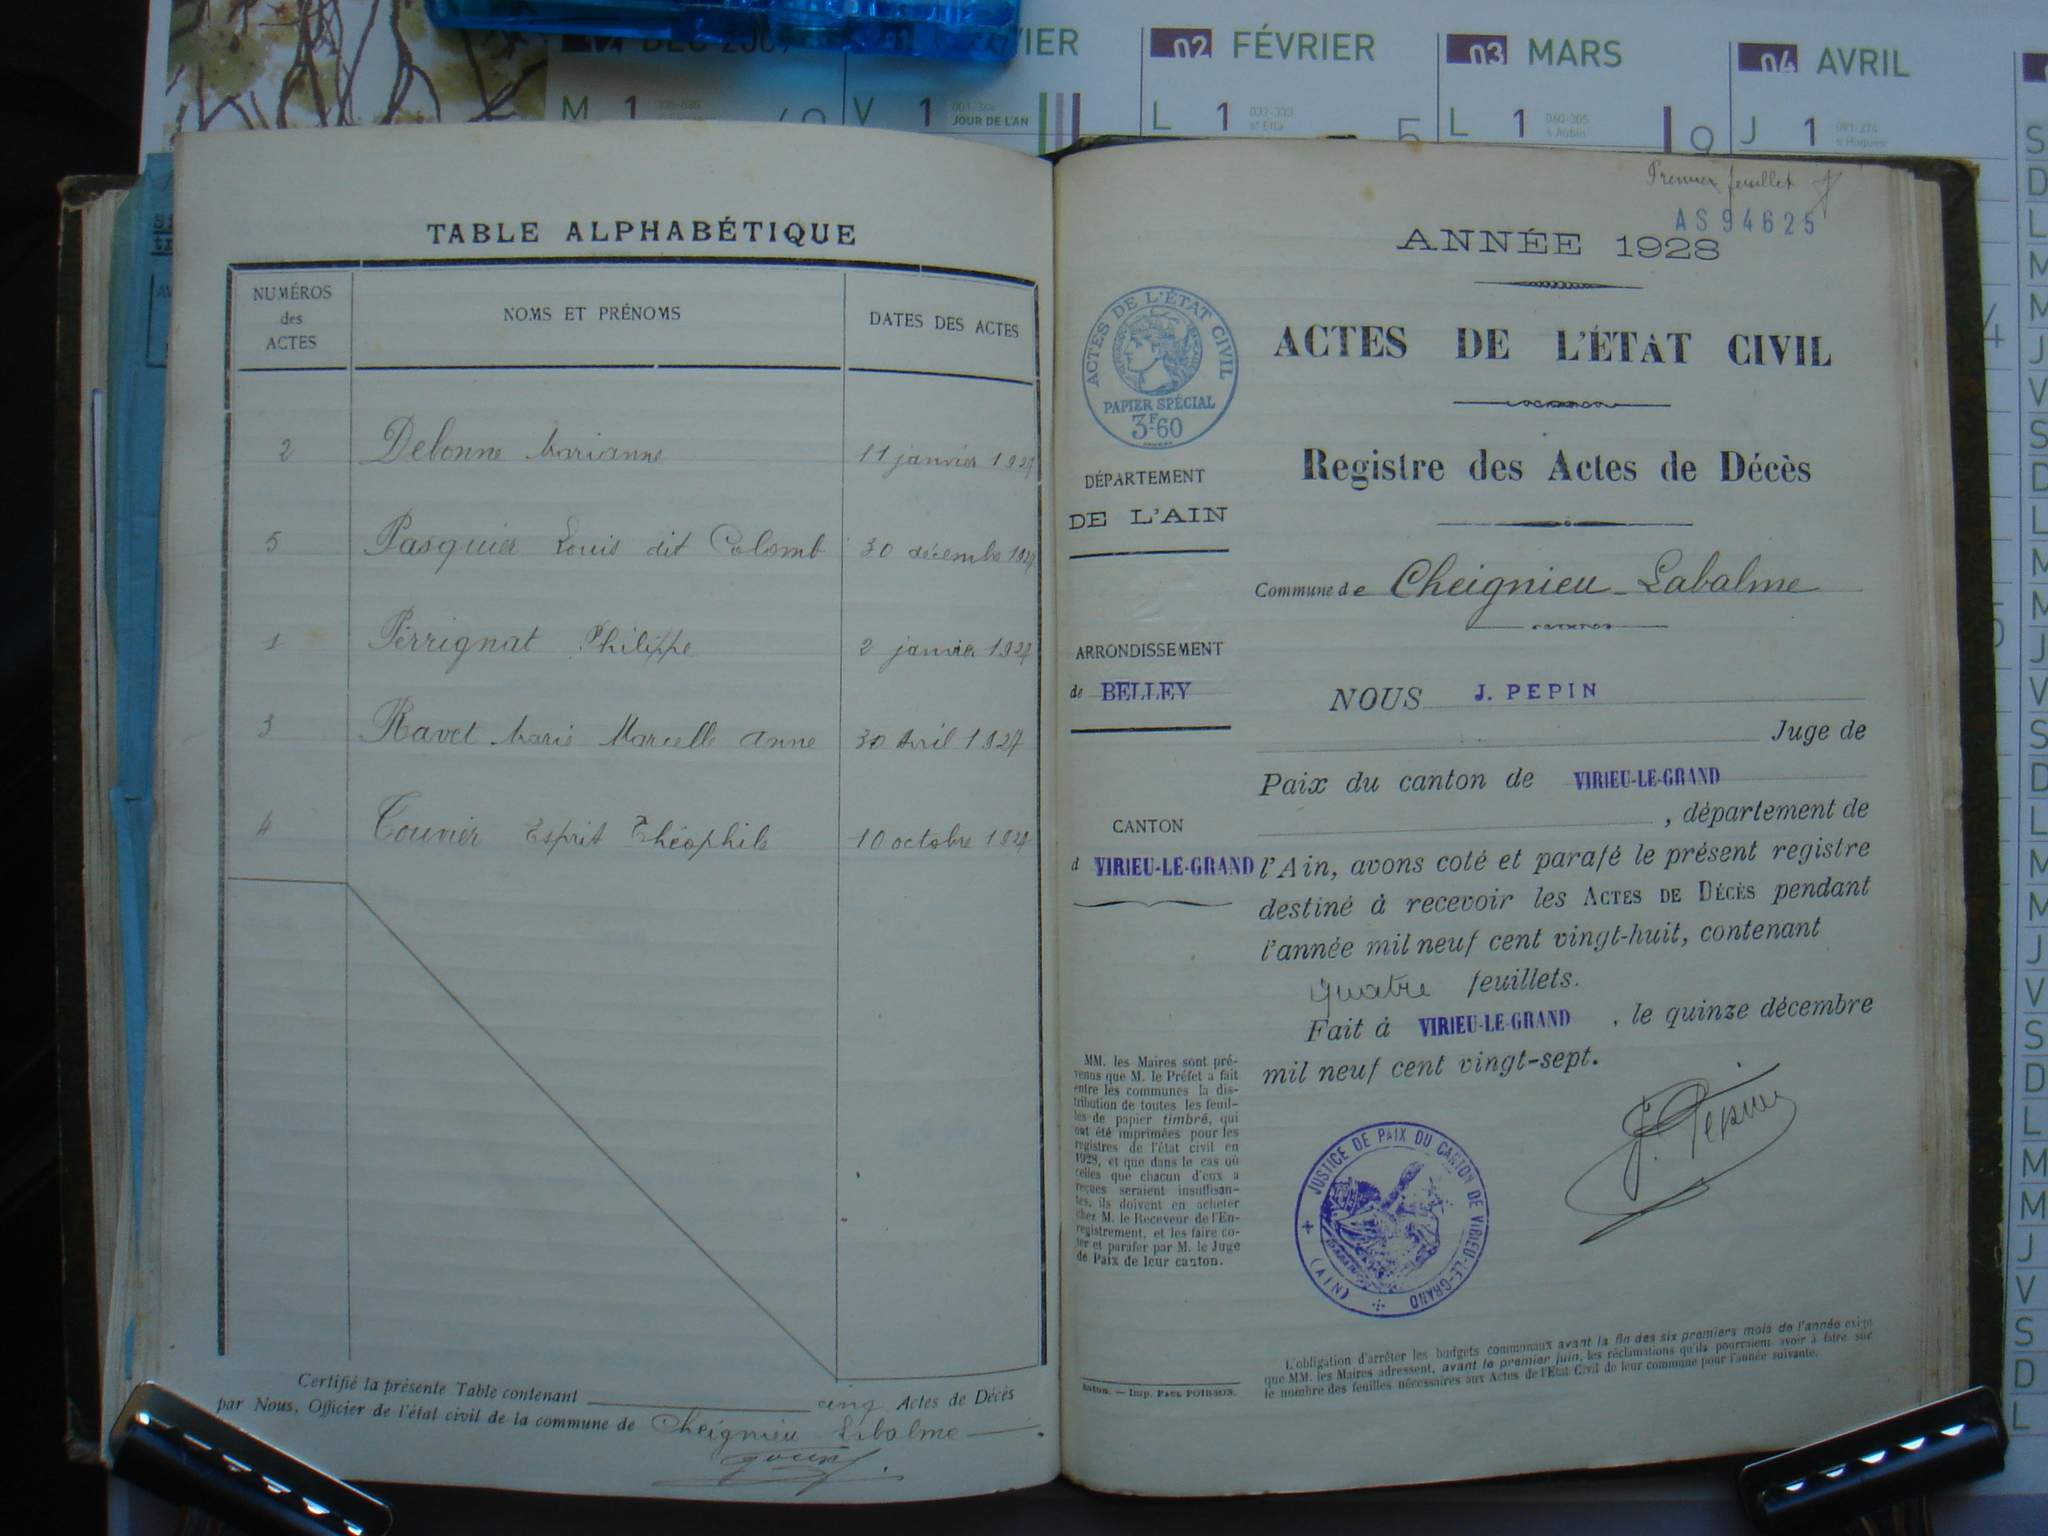 DEC 2009
VIER
02 FÉVRIER
03 MARS
04 AVRIL
M 1
V 1 JOUR DE L'AN
L 1
L 1
J 1
TABLE ALPHABÉTIQUE
NUMÉROS des ACTES
NOMS ET PRÉNOMS
DATES DES ACTES
2 Delonne Marianne 11 janvier 1927
5 Pasquier Louis dit Colomb 30 décembre 1927
1 Perrignat Philippe 2 janvier 1927
3 Ravet Marie Marcelle Anne 30 Avril 1927
4 Touvier Esprit Théophile 10 octobre 1927
Certifié la présente Table contenant cinq Actes de Décès
par Nous, Officier de l'état civil de la commune de Cheignieu Labalme
Premier feuillet
AS 94625
ANNÉE 1928
ACTES DE L'ÉTAT CIVIL
PAPIER SPÉCIAL
3F60
ACTES DE L'ÉTAT CIVIL
Registre des Actes de Décès
DÉPARTEMENT
DE L'AIN
Commune de Cheignieu-Labalme
ARRONDISSEMENT
de BELLEY
CANTON
d VIRIEU-LE-GRAND
NOUS J. PEPIN
Juge de
Paix du canton de VIRIEU-LE-GRAND
, département de
l'Ain, avons coté et parafé le présent registre
destiné à recevoir les ACTES DE DÉCÈS pendant
l'année mil neuf cent vingt-huit, contenant
quatre feuillets.
Fait à VIRIEU-LE-GRAND, le quinze décembre
mil neuf cent vingt-sept.
J. Pepin
JUSTICE DE PAIX DU CANTON DE VIRIEU-LE-GRAND
(AIN)
MM. les Maires sont pré-
venus que M. le Préfet a fait
entre les communes la dis-
tribution de toutes les feuil-
les de papier timbré, qui
ont été imprimées pour les
registres de l'état civil en
1928, et que dans le cas où
celles que chacun d'eux a
reçues seraient insuffisan-
tes, ils doivent en acheter
chez M. le Receveur de l'En-
registrement, et les faire co-
ter et parafer par M. le Juge
de Paix de leur canton.
— Imp. PAUL POIRSON.
L'obligation d'arrêter les budgets communaux avant la fin des six premiers mois de l'année exige
que MM. les Maires adressent, avant le premier juin, les réclamations qu'ils pourraient avoir à faire sur
le nombre des feuilles nécessaires aux Actes de l'Etat Civil de leur commune pour l'année suivante.